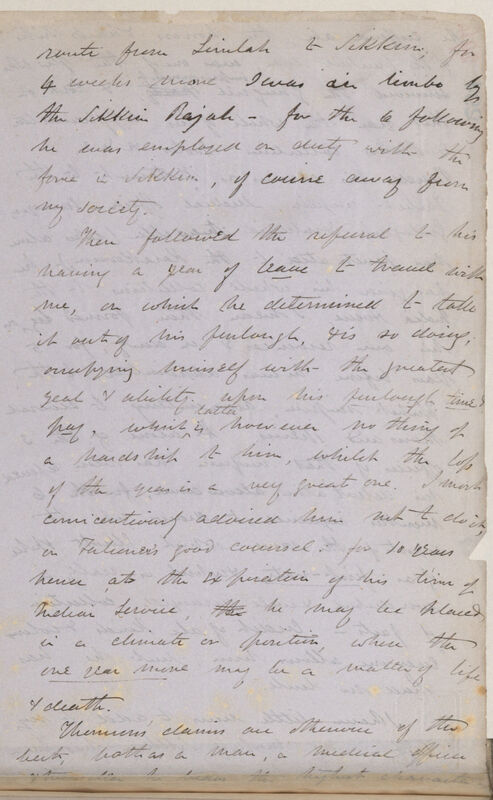 route from Simlah to Sikkim, for
4 weeks more I was in limbo by
the Sikkim Rajah – for the 6 following
he was employed on duty with the
force in Sikkim, of course away from
my society.
Then followed the refusal to his
having a year of leave to travel with
me, on which he determined to take
it out of his furlough, & is so doing,
occupying himself with the greatest
zeal & ability upon his furlough time &
pay, which latter is however nothing of
a hardship to him, whilst the loss
of the year is a very great one. I most
conscientiously advised him not to do it,
on Falconer's good counsel. for 10 years
hence, at the expiration of his term of
Indian Service, the he may be placed
in a climate or position, when the
one year more may be a matter of life
& death.
Thomson's claims are otherwise of the
best, both as a man, a medical officer
he bears the highest character